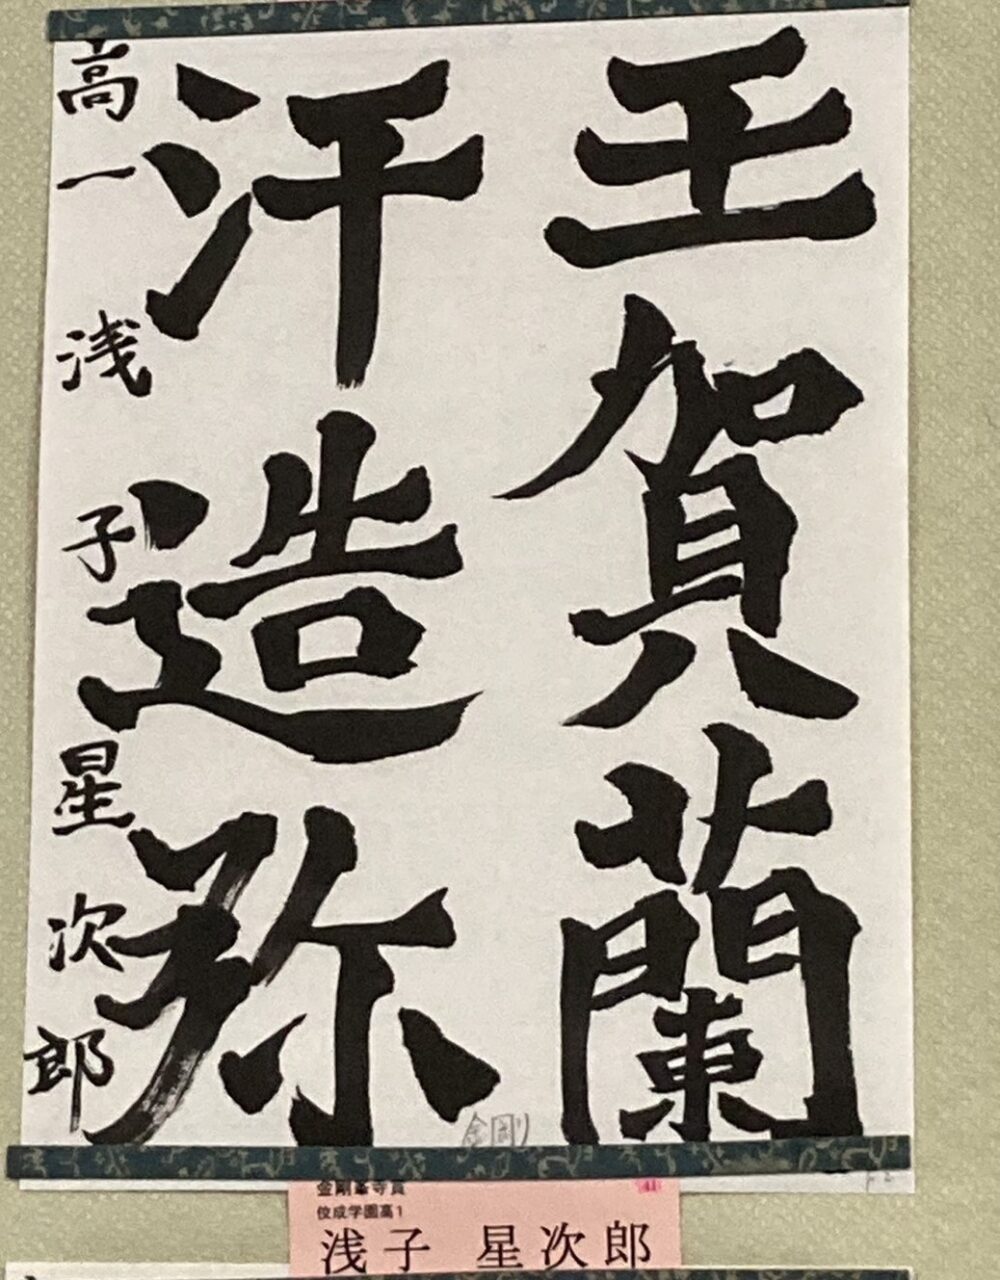 王賀蘭
汗造弥
高一 浅子星次郎
金剛
金剛峯寺賞
佼成学園高1
浅子 星次郎